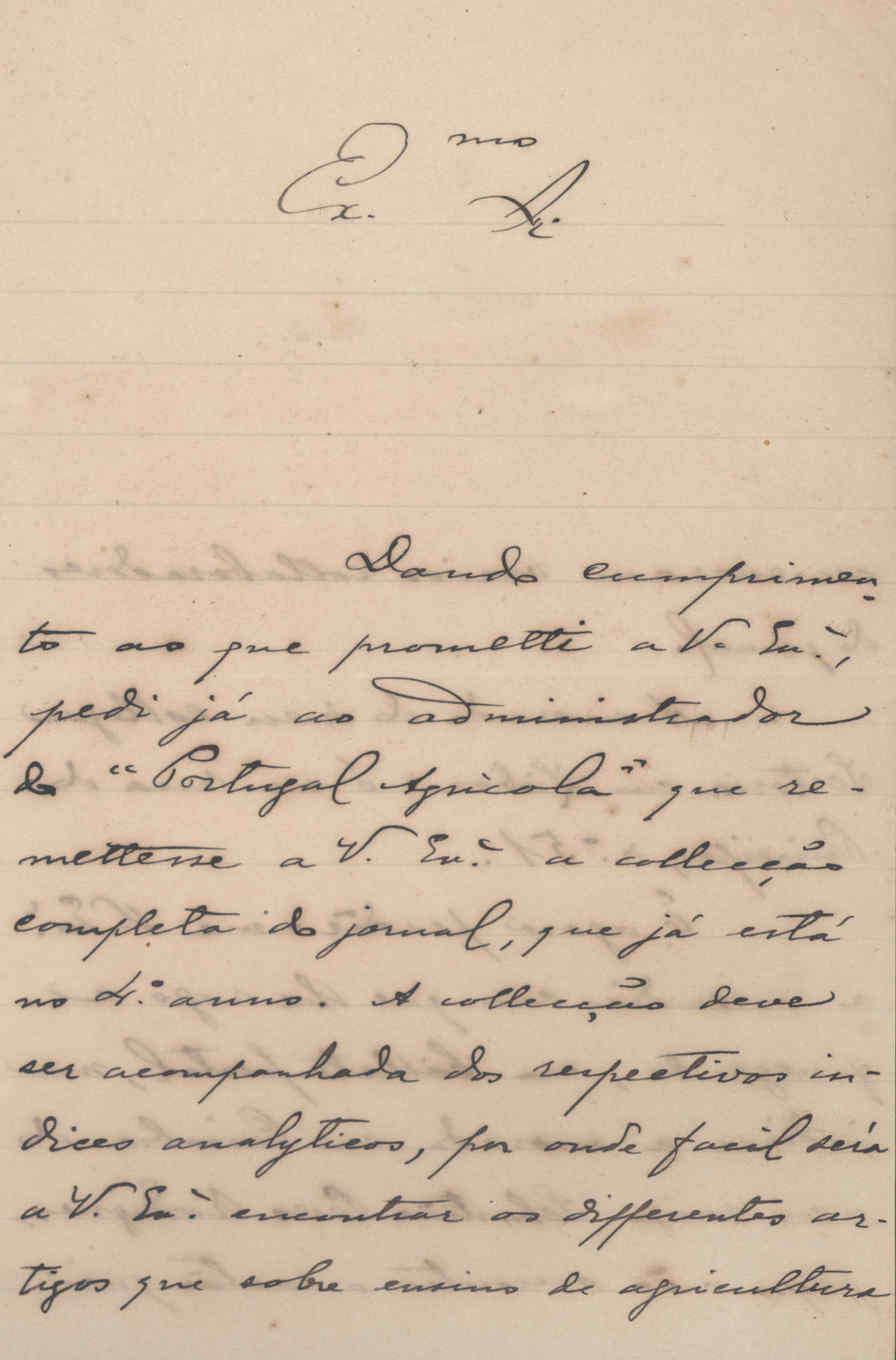 Ex.mo Sr.
Dando cumprimen-
to ao que prometti a V. Exª.,
pedi já ao administrador
do "Portugal Agricola" que re-
mettesse a V. Exª. a collecção
completa do jornal, que já está
no 4.º anno. A collecção deve
ser acompanhada dos respectivos in-
dices analyticos, por onde facil será
a V. Exª. encontrar os differentes ar-
tigos que sobre ensino de agricultura